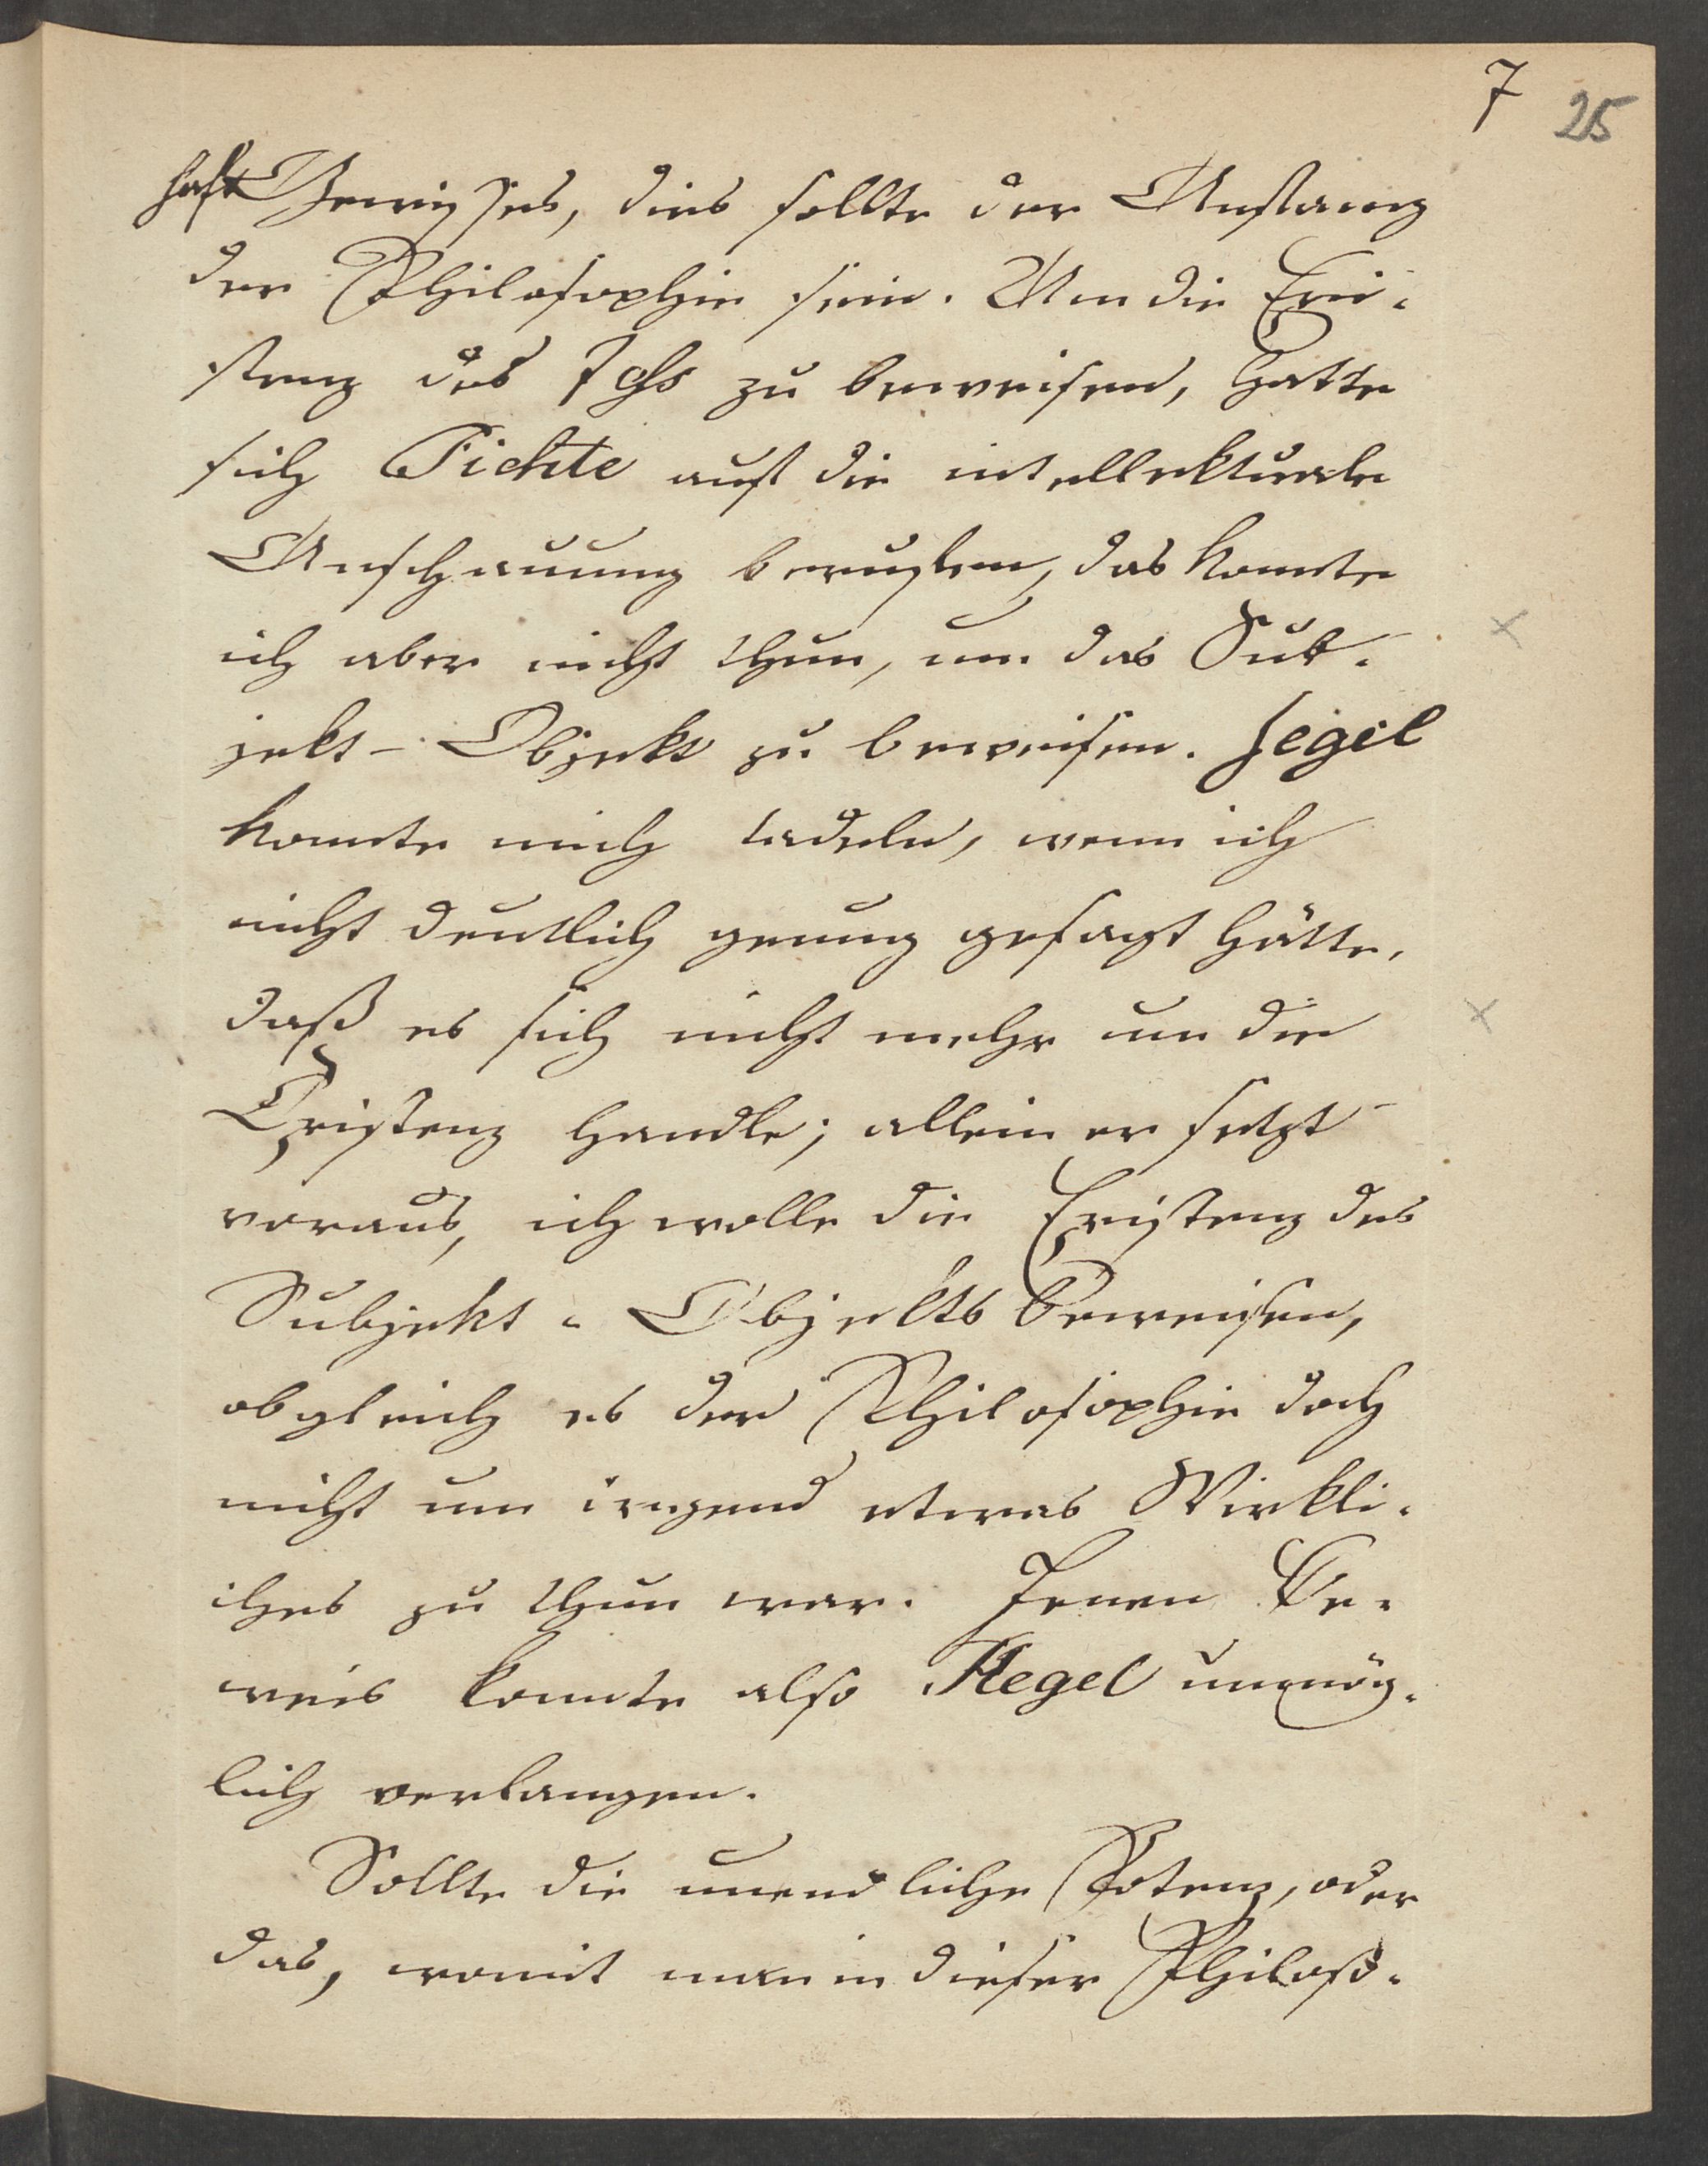 7 25
haft Gewisses, dies sollte der Anfang
der Philosophie sein. Um die Exi-
stenz des Ichs zu beweisen, hatte
sich Fichte auf die intellektuale
Anschauung berufen, das konnte
ich aber nicht thun, um das Sub-
jekt-Objekt zu beweisen. Hegel
konnte mich tadeln, wenn ich
nicht deutlich genug gesagt hätte,
daß es sich nicht mehr um die
Existenz handle; allein er setzt
voraus, ich wolle die Existenz des
Subjekt-Objekts beweisen,
obgleich es der Philosophie doch
nicht um irgend etwas Wirkli-
ches zu thun war. Jenen Be-
weis konnte also Hegel unmög-
lich verlangen.
Sollte die unendliche Potenz, oder
das, womit man in dieser Philoso-